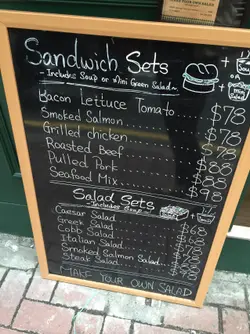 Sandwich Sets
- Includes Soup or Mini Green Salad -
Bacon Lettuce Tomato ........ $78
Smoked Salmon ........ $78
Grilled chicken ........ $78
Roasted Beef ........ $78
Pulled Pork ........ $88
Seafood Mix ........ $98
Salad Sets
- Includes Soup -
Caesar Salad ........ $68
Greek Salad ........ $68
Cobb Salad
Italian Salad
Smoked Salmon Salad
Steak Salad ........ $98
MAKE YOUR OWN SALAD